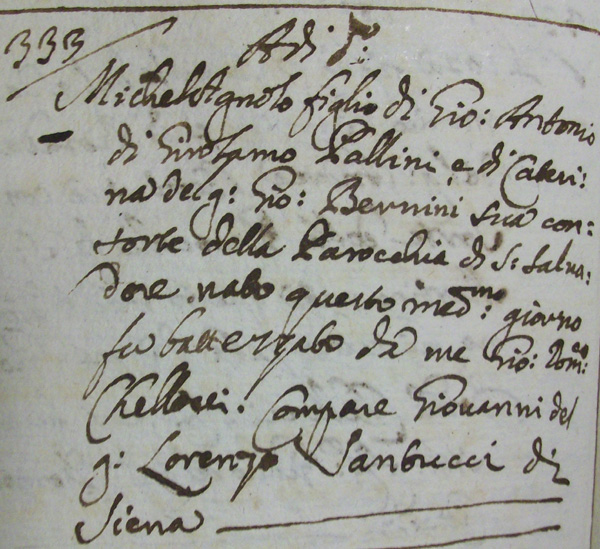 333
Adì d.º
Michelagnolo figlio di Gio: Antonio
di Girolamo Pallini, e di Cateri:
na del q: Gio: Bernini sua con:
sorte della Parocchia di S: Salva:
dore nato questo med:mo giorno
fu battezzato da me Gio: Dom:co
Compare Giovanni del
q: Lorenzo Santucci di
Siena